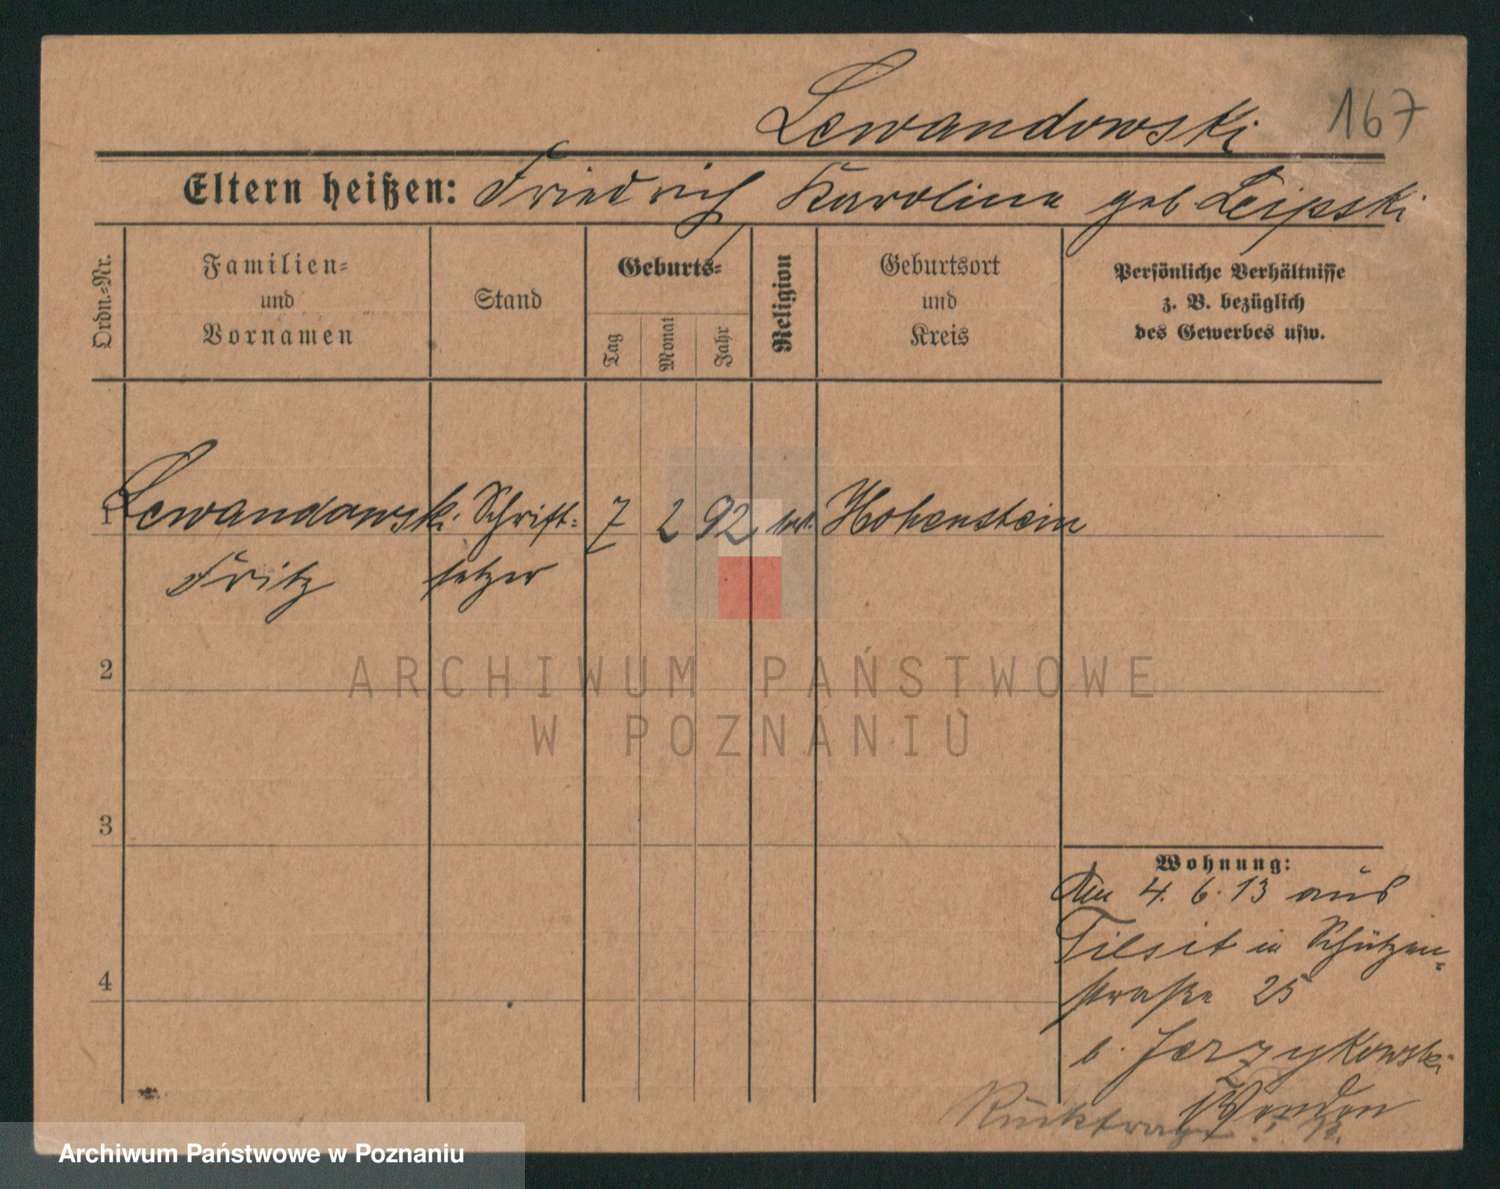 Lewandowski 167
Eltern heißen: Friedrich Karoline geb Leipski
Ordn.=Nr.
Familien=
und
Vornamen
Stand
Geburts=
Tag
Monat
Jahr
Religion
Geburtsort
und
Kreis
Persönliche Verhältnisse
z. B. bezüglich
des Gewerbes usw.
1 Lewandowski Schrift= 7 2 92 Hohenstein
Fritz setzer
2
3
4
Wohnung:
Am 4. 6. 13 aus
Tilsit in Schützen=
straße 25
b. Jerzykowski
ARCHIWUM PAŃSTWOWE
W POZNANIU
Archiwum Państwowe w Poznaniu